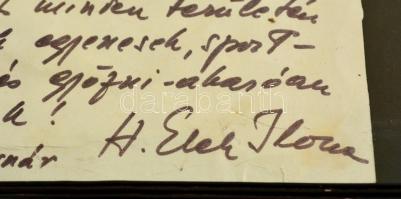 minden területén
egyenesek, sport-
és győzni-akaróan
k!
H. Elek Ilona
nár
darabanth